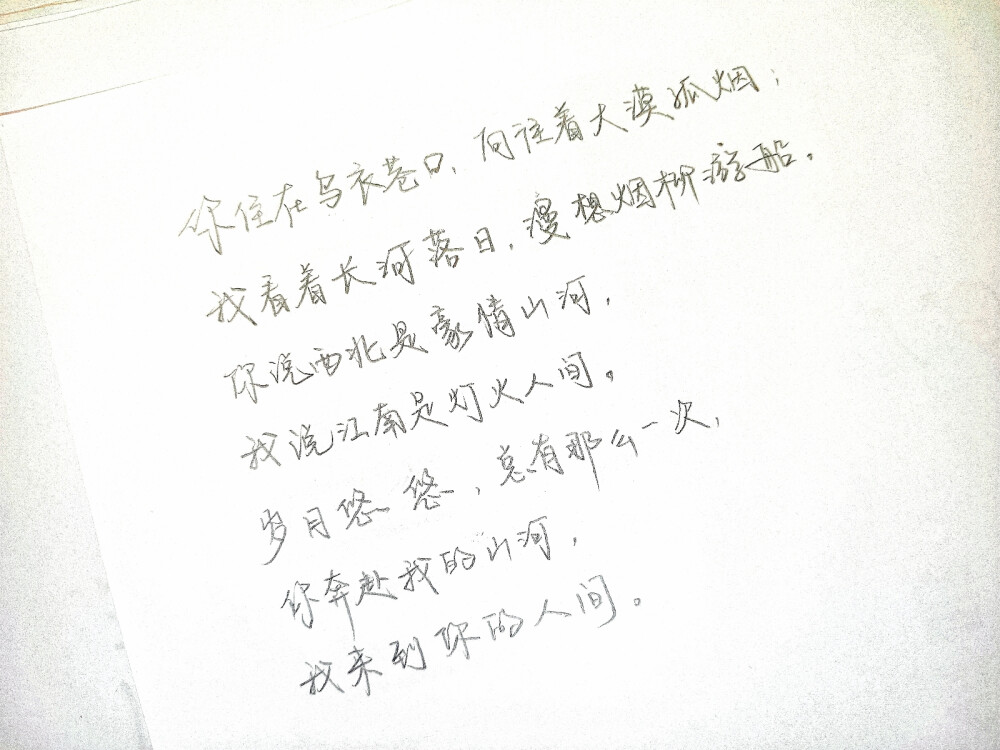 你住在乌衣巷口，向往着大漠孤烟；
我看着长河落日，漫想烟柳游船。
你说西北是豪情山河，
我说江南是灯火人间。
岁月悠悠，总有那么一次，
你奔赴我的山河，
我来到你的人间。